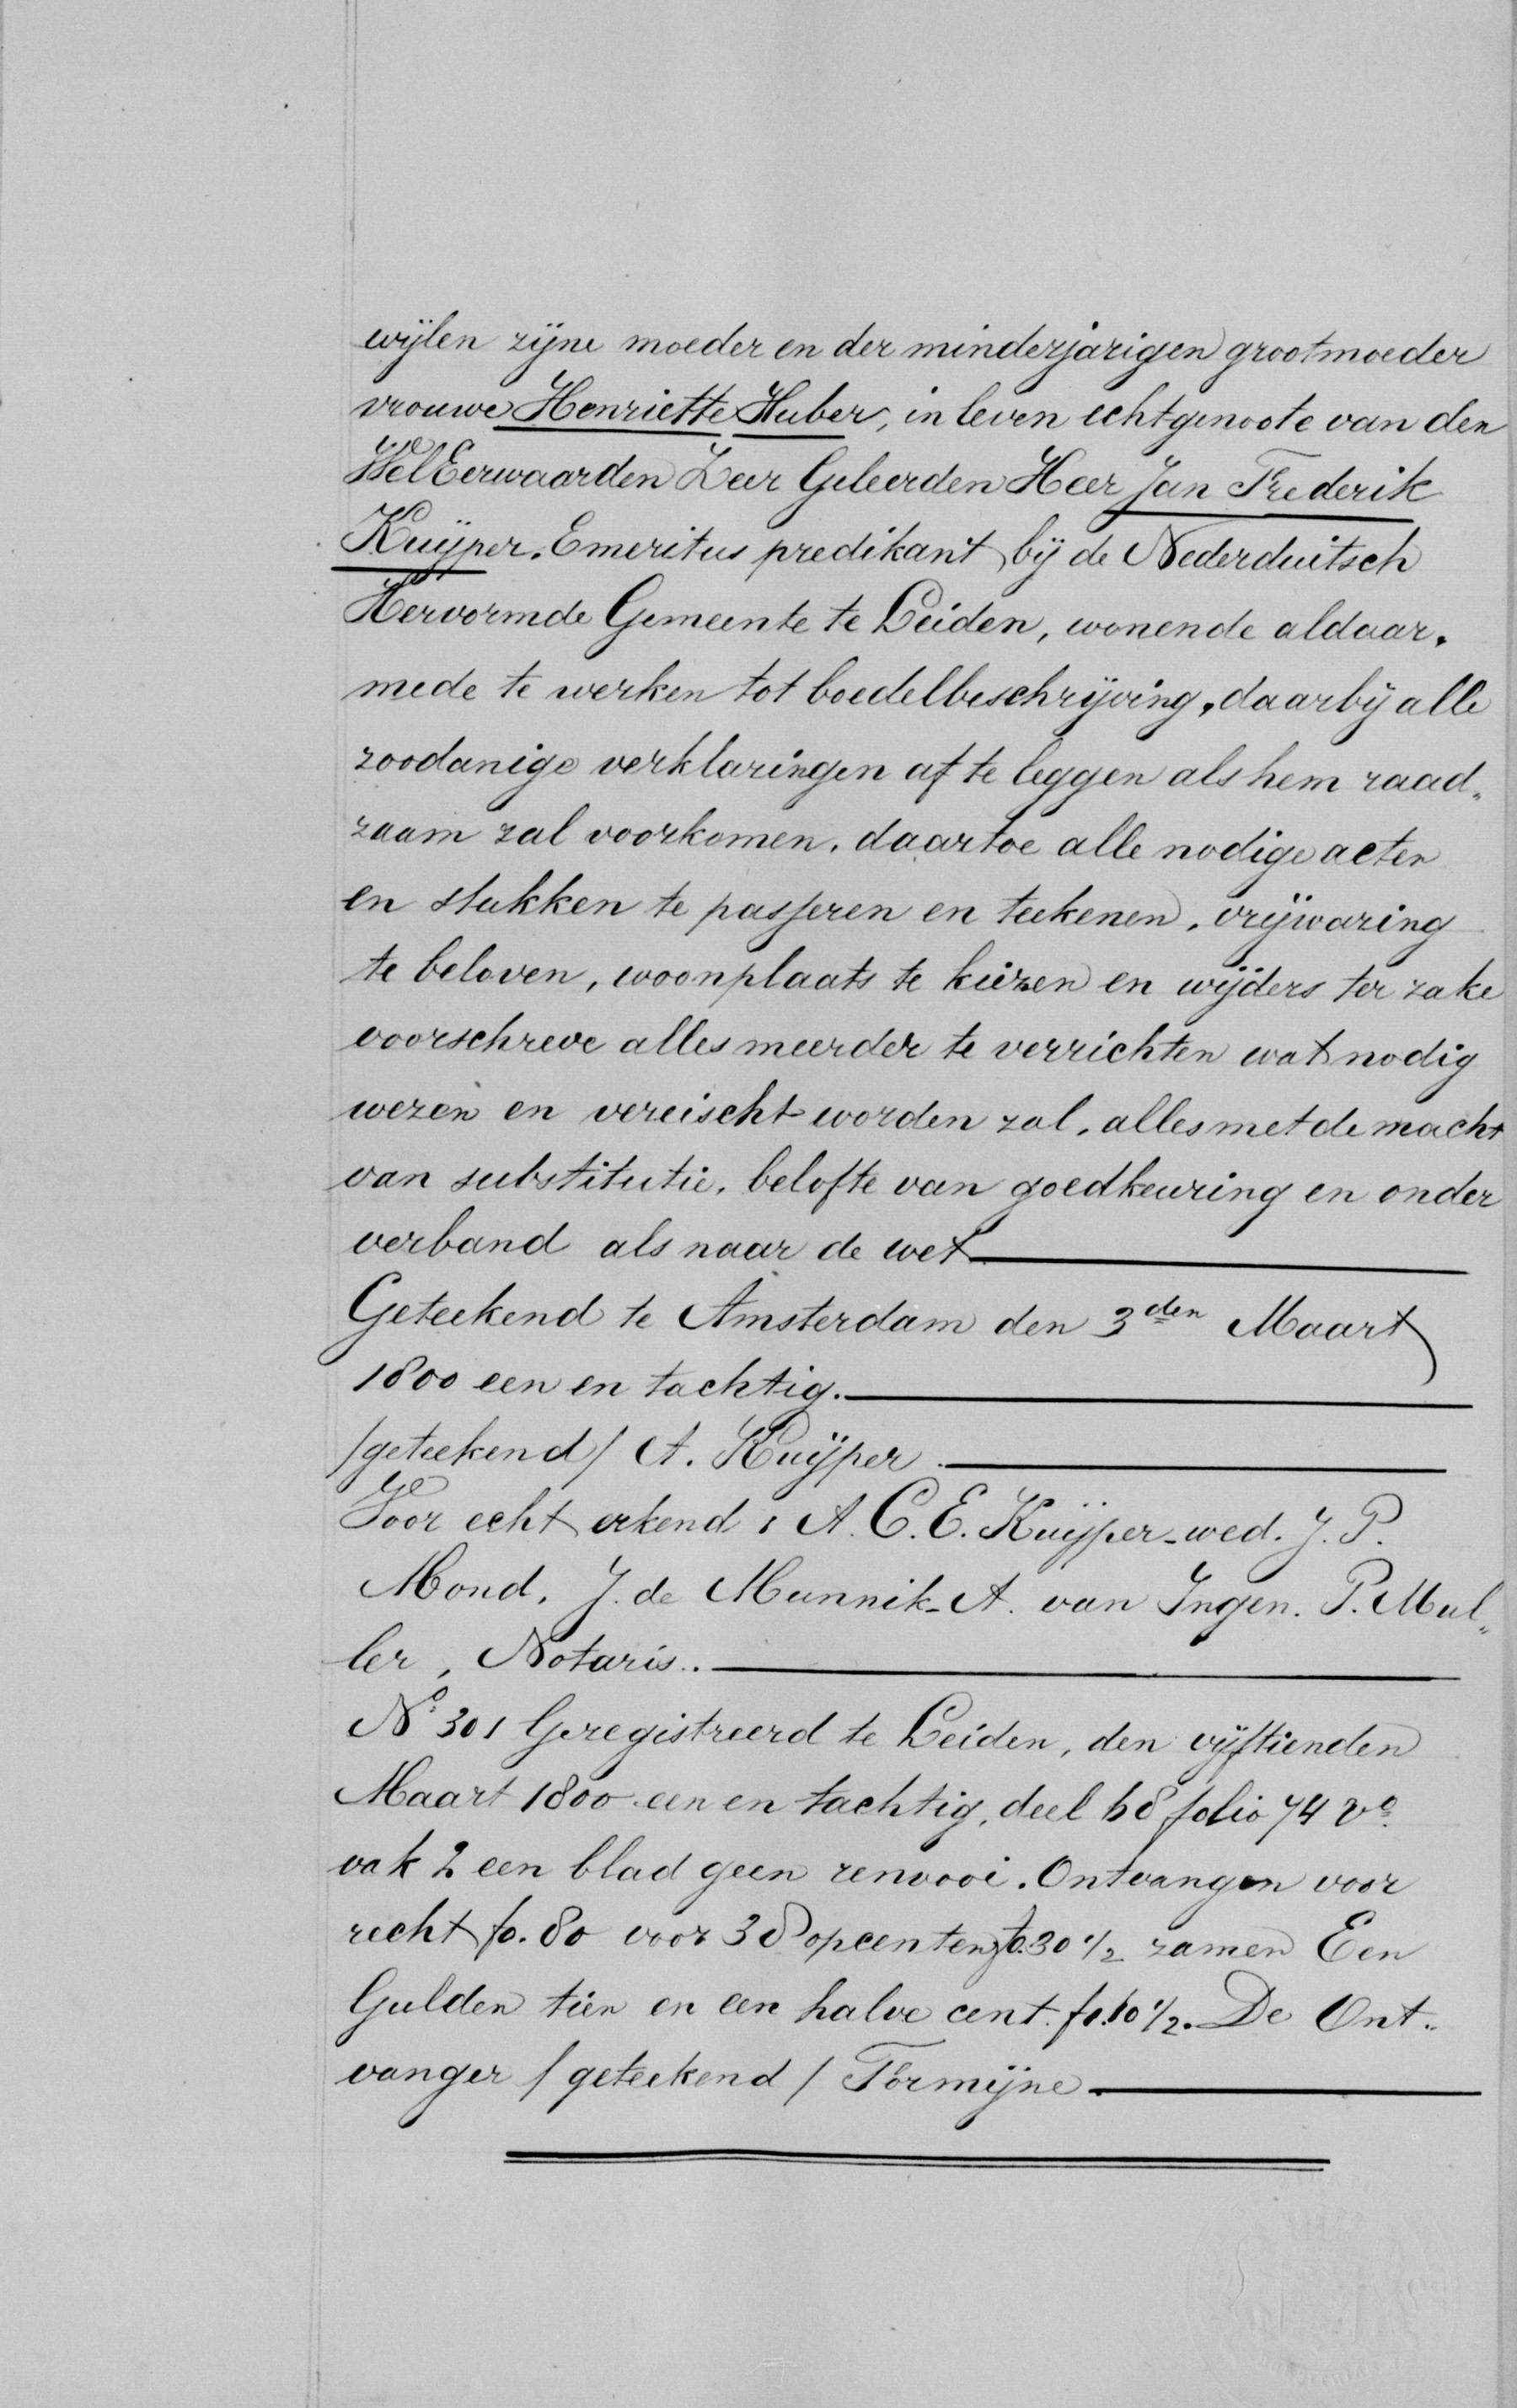 wijlen zijne moeder en der minderjarigen grootmoeder
vrouwe Henriette Huber, in leven echtgenoote van den
WelEerwaarden Zeer Geleerden Heer Jan Frederik
Kuijper, Emeritus predikant bij de Nederduitsch
Hervormde Gemeente te Leiden, wonende aldaar,
mede te werken tot boedelbeschrijving, daarbij alle
zoodanige verklaringen af te leggen als hem raad„
zaam zal voorkomen, daartoe alle nodige acten
en stukken te passeren en teekenen, vrijwaring
te beloven, woonplaats te kiezen en wijders ter zake
voorschreve alles meerder te verrichten wat nodig
wezen en vereischt worden zal, alles met de macht
van substitutie, belofte van goedkeuring en onder
verband als naar de wet
Geteekend te Amsterdam den 3den Maart
1800 een en tachtig.
/geteekend/ A. Kuijper.
Voor echt erkend: A. C. E. Kuijper-wed. J. P.
Mond. J. de Munnik-A. van Ingen. P. Mul„
ler, Notaris..
No 301 Geregistreerd te Leiden, den vijftienden
Maart 1800 een en tachtig, deel 68 folio 74 vo
vak 2 een blad geen renvooi. Ontvangen voor
recht f0.80 voor 38 opcenten f0.30 1/2 zamen Een
Gulden tien en een halve cent. f1.10 1/2. De Ont„
vanger /geteekend/ Formijne.